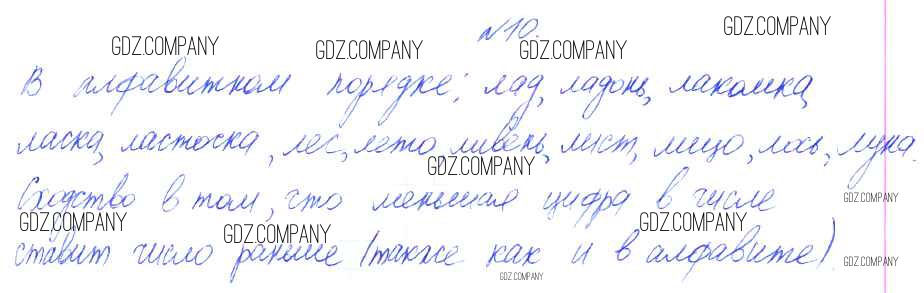 №10.
В алфавитном порядке: лад, ладонь, лакомка,
ласка, ласточка, лес, лето, ливень, лист, лицо, лось, луна.
Сходство в том, что меньшая цифра в числе
ставит число раньше (также как и в алфавите).
GDZ.COMPANY
GDZ.COMPANY
GDZ.COMPANY
GDZ.COMPANY
GDZ.COMPANY
GDZ.COMPANY
GDZ.COMPANY
GDZ.COMPANY
GDZ.COMPANY
GDZ.COMPANY
GDZ.COMPANY